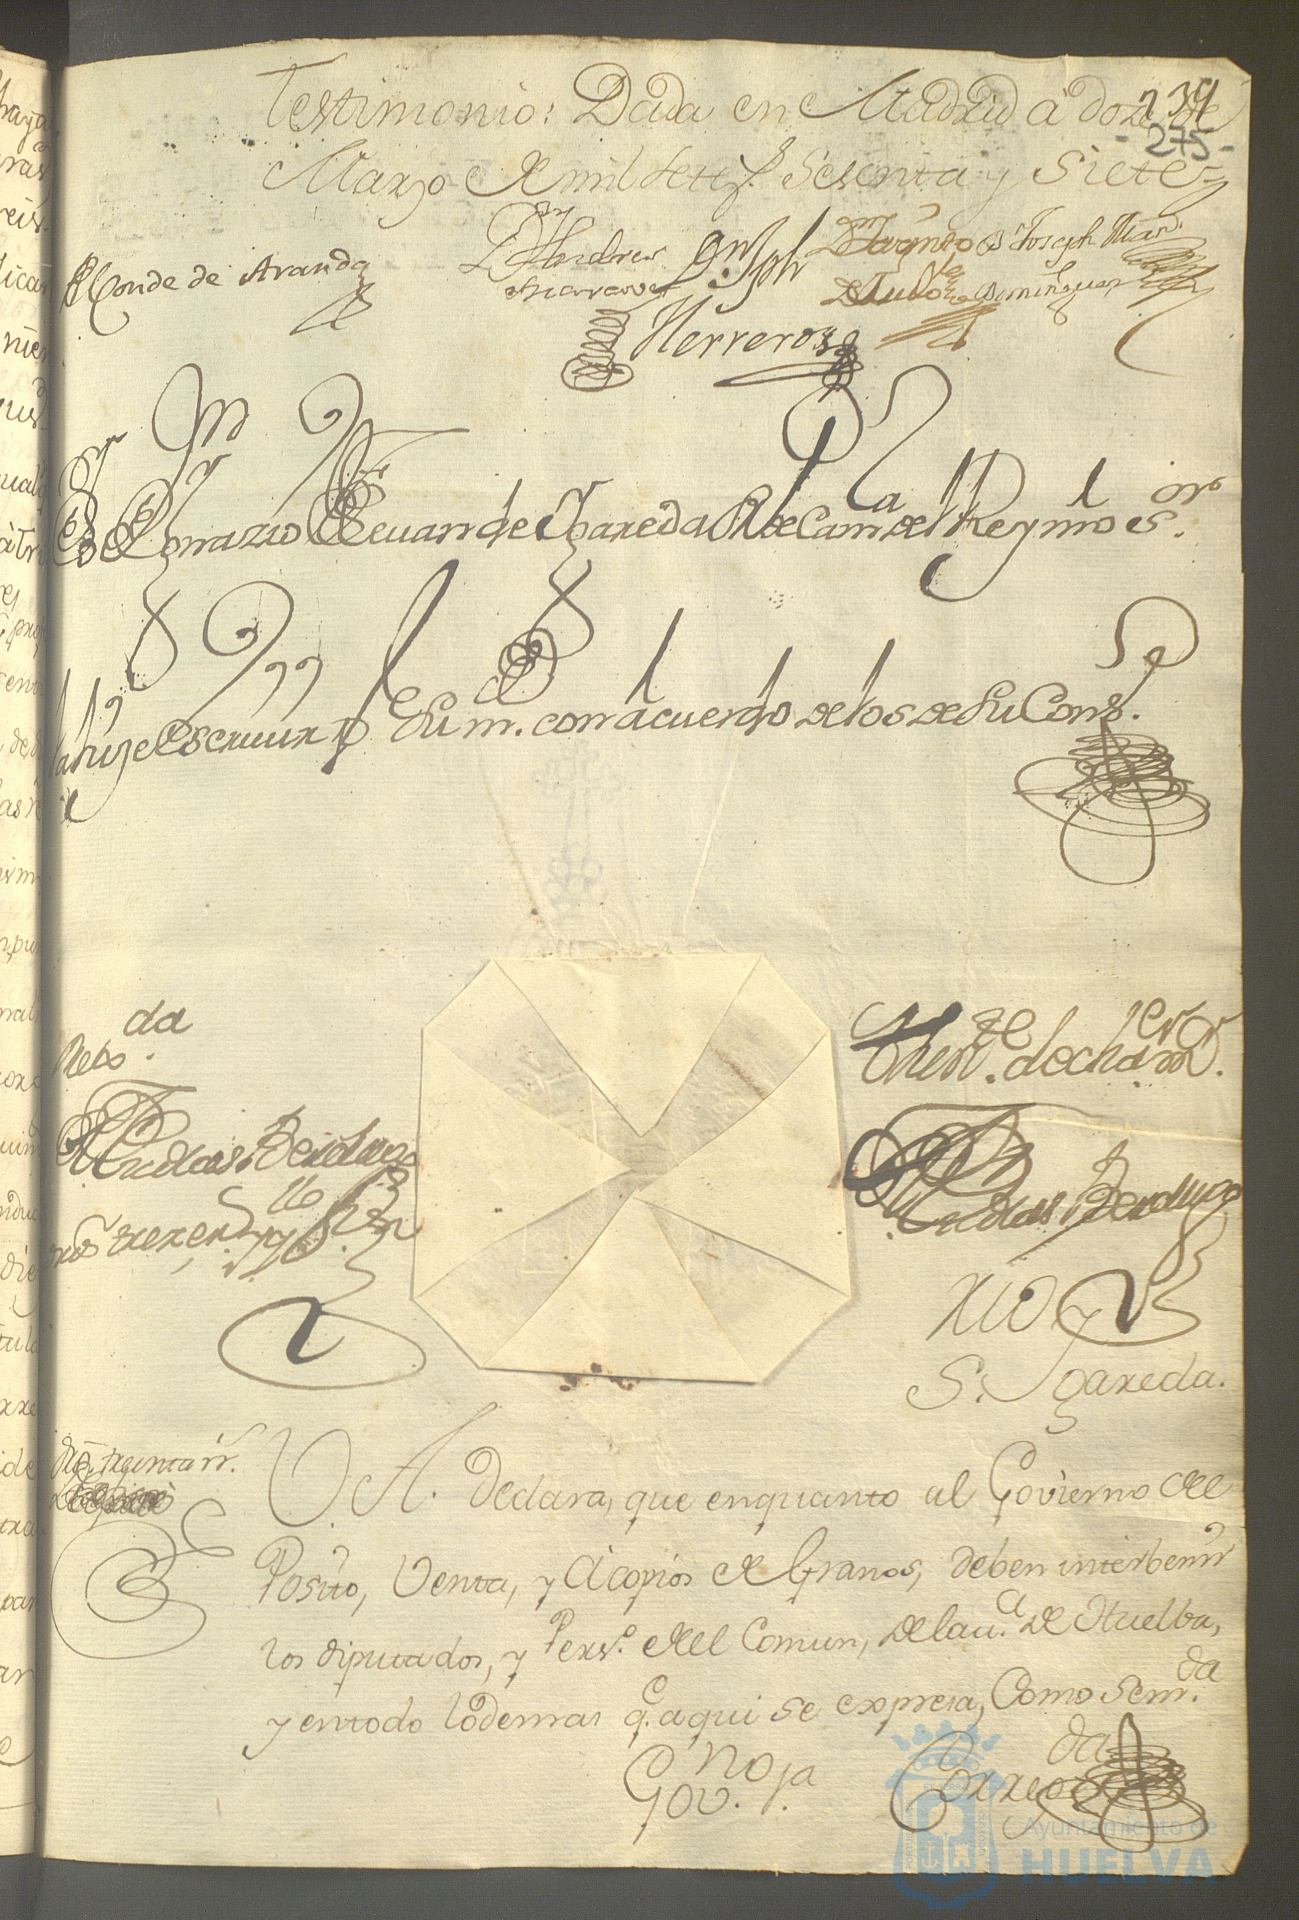 239
Testimonio: Dada en Madrid à doze de
- 275 -
Marzo de mil setez.s Sesenta y Siete
El Conde de Aranda
Dn Andres
Dn Jph
Herreros
Dn Jacinto
de Tudó
Dn Joseph Mar.
Dominguez
Yo Dn Ignazio Estevan de Ygareda SSno de Cam.a del Rey nro S.or
la hize Escriuir p.r Su m.do con acuerdo de los de Su Cons.o
Rex.da
Nicolas Berdugo
Then.te de Chan.er m.or
Nicolas Berdugo
S.rio Ygareda.
dros treinta rr.
V. A. Declara, que enquanto al Govierno del
Posito, Venta, y Acopios de Granos, deben interbenir
los diputados, y Pers.o del Comun, de la v.a de Huelba,
y entodo lo demas q.e aqui se expresa, Como se m.da
Gov.no 1.a
Corre.da
Ayuntamiento de
HUELVA